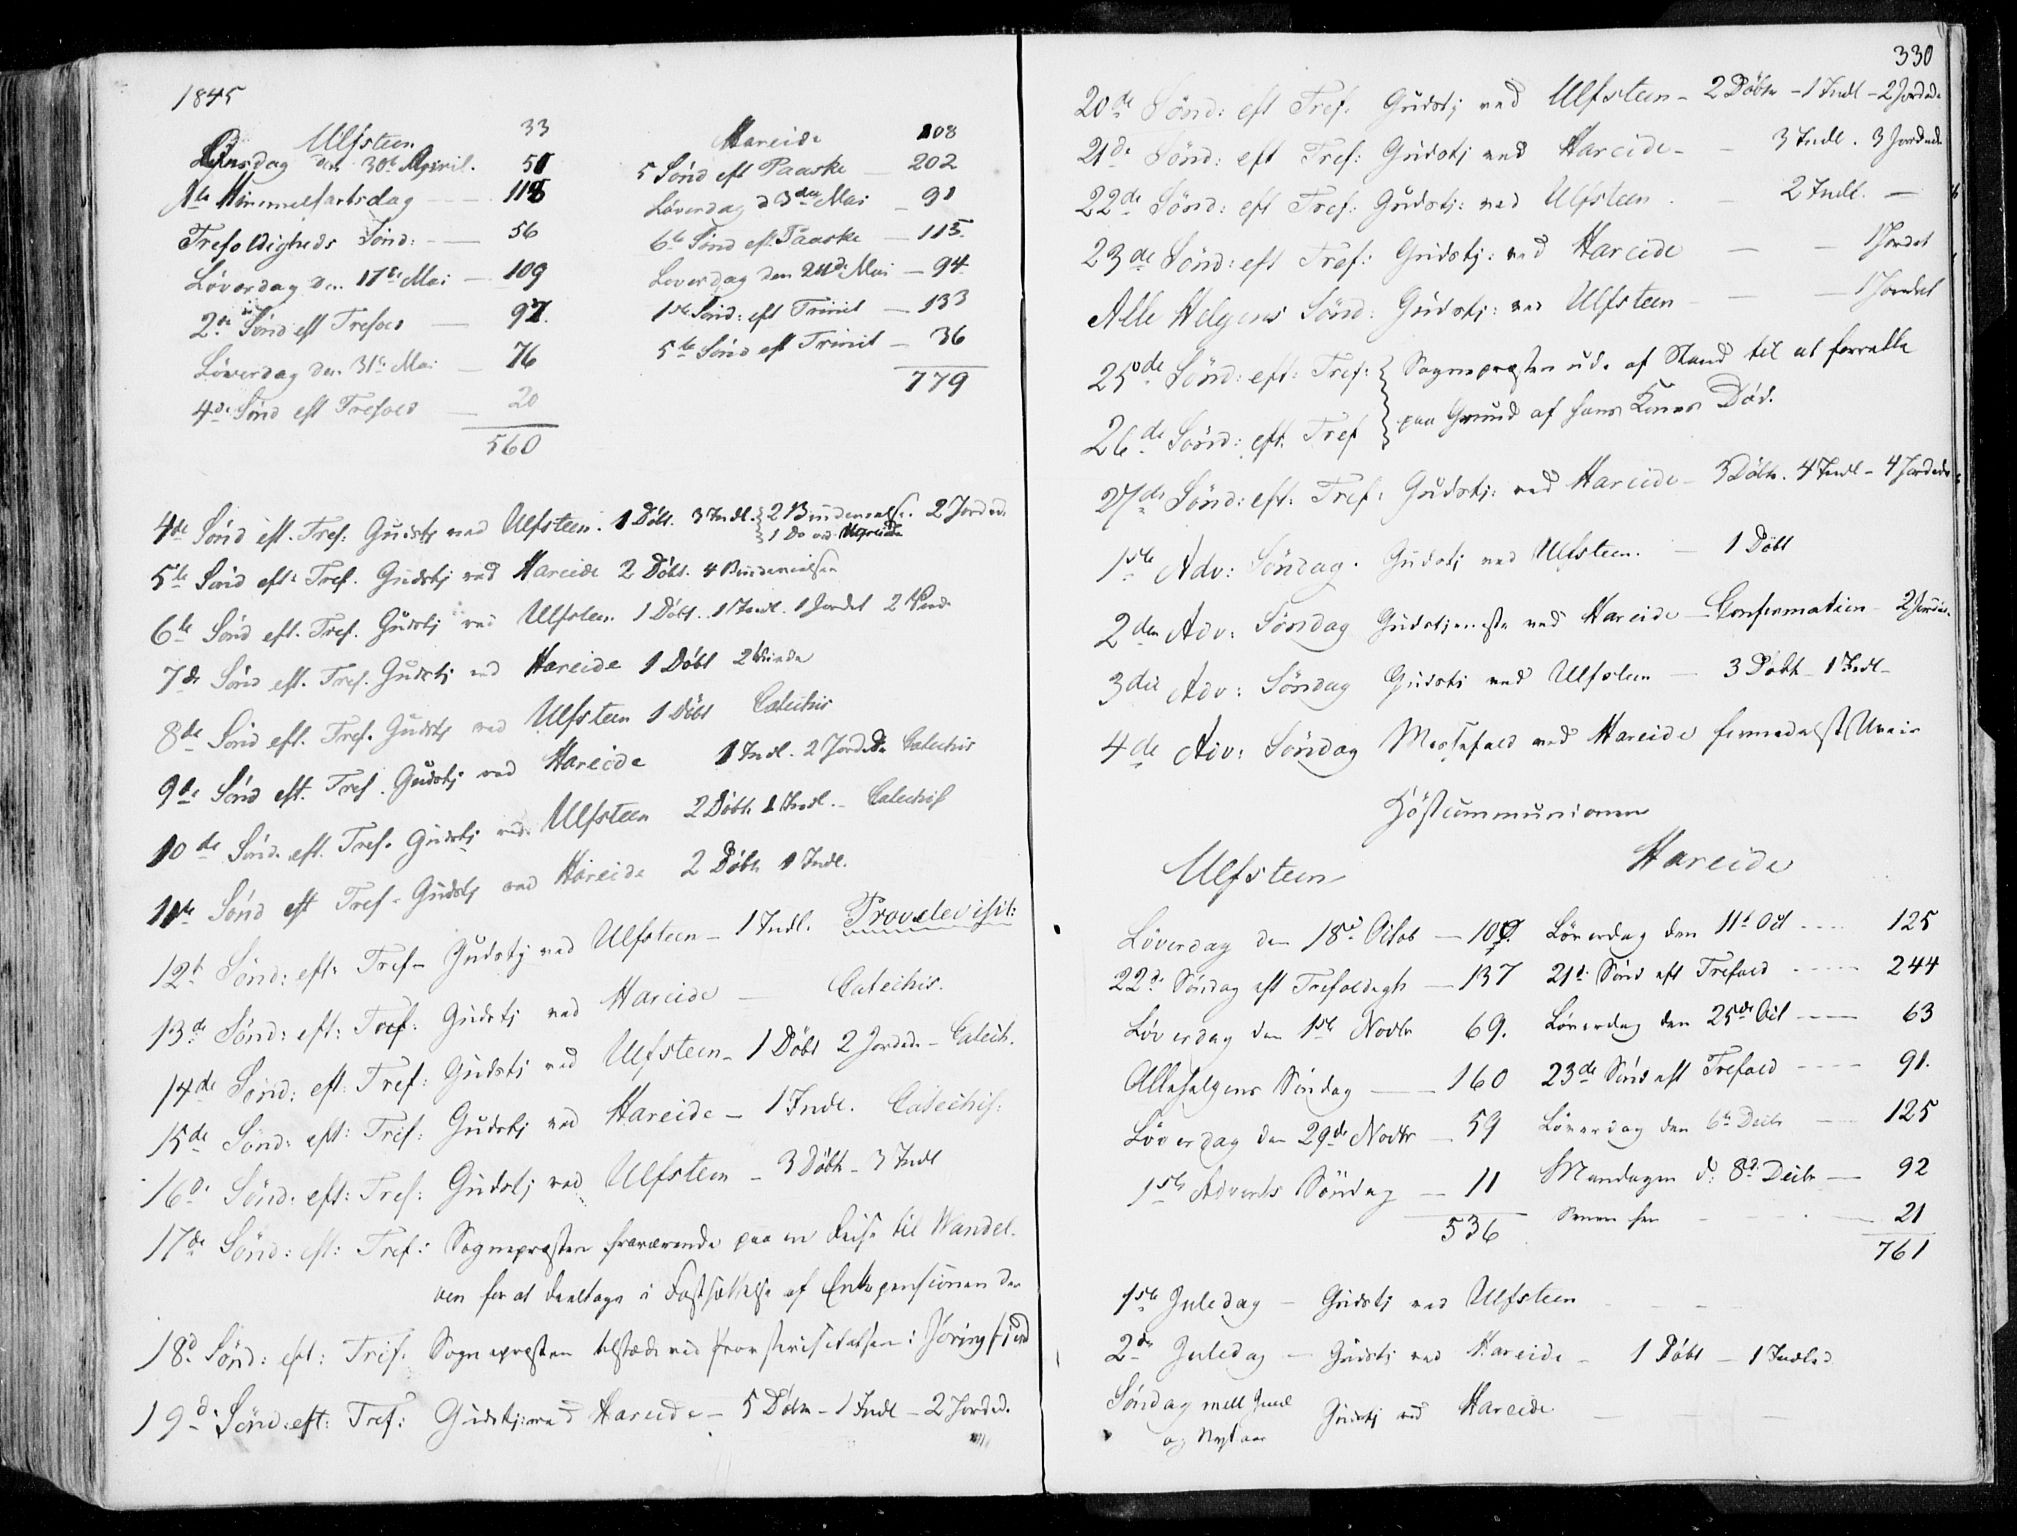 1845
Ulfsteen 33
Onsdag den 30te April. 51
Xti Himmelfartsdag 118
Trefoldigheds Sönd: 56
Löverdag den 17de Mai 109
2den Sönd eft Trefold 97.
Löverdag den 31te Mai 76
4de Sönd eft Trefold 20
560
Hareide 108
5 Sönd eft Paaske 202
Löverdag d 3die Mai 91
6te Sönd eft. Paaske 115.
Loverdag den 24de Mai 94
1ste Sönd: eft Trinit 133
5te Sönd eft Trinit 36
779
4de Sönd eft. Tref: Gudstj ved Ulfsteen. 1 Döbt. 3 Indl. 2 2 Jorded.
1 Do ved Hareide
5te Sönd eft: Tref. Gudstj ved Hareide 2 Döbt. 4
6te Sönd eft. Tref. Gudstj ved Ulfsteen 1 Döbt. 1 Indl. 1 Jordet 2
7de Sönd eft. Tref. Gudstj ved Hareide 1 Döbt 2
8de Sönd eft. Tref. Gudstj ved Ulfsteen 1 Döbt Catechis
9de Sönd eft. Tref. Gudstj ved Hareide 1 Indl. 2 Jordede Catechis
10de Sönd. eft. Tref. Gudstj ved Ulfsteen 2 Döbte 1 Indl. - Catechis
11te Sönd eft Tref - Gudstj ved Hareide 2 Döbte 1 Indl.
12te Sönd: eft: Tref - Gudstj ved Ulfsteen - 1 Indl. Provstevisit:
13de Sönd: eft: Tref: Gudstj ved Hareide - Catechis.
14de Sönd: eft: Tref: Gudstj ved Ulfsteen - 1 Döbt 2 Jordede - Catech.
15de Sönd: eft: Tref: Gudstj ved Hareide - 1 Indl. Catechis:
16de Sönd: eft: Tref: Gudstj ved Ulfsteen - 3 Döbte - 3 Indl
17de Sönd: eft: Tref: Sognepræsten fraværende paa en Reise til Vandel-
ven for at deeltage i Fastsættelse af Enkepensionen der
18de Sönd: eft: Tref: Sognepræsten tilstæde ved Provstevisitatsen i Jöringfjord
19de Sönd: eft: Tref: Gudstj: ved Hareide - 5 Döbte - 1 Indl - 2 Jorded.
330
20de Sönd: eft Tref: Gudstj ved Ulfsteen - 2 Döbte - 1 Indl - 2 Jordede
21de Sönd: eft Tref: Gudstj ved Hareide - - 3 Indl. 3 Jordede
22de Sönd: eft Tref: Gudstj: ved Ulfsteen - 2 Indl. -
23de Sönd: eft Tref: Gudstj: ved Hareide - - 1 Jordet
Alle Helgens Sönd: Gudstj: ved Ulfsteen - - 1 Jordet
25de Sönd: eft: Tref: Sognepræsten ude af Stand til at forrette
26de Sönd: eft. Tref paa Grund af hans Kones Död.
27de Sönd: eft: Tref: Gudstj: ved Hareide - 3 Döbte. 4 Indl - 4 Jordede
1ste Adv: Söndag. Gudstj ved Ulfsteen. - 1 Döbt
2den Adv: Söndag Gudstjeneste ved Hareide - Confirmation - 2 Jorded.
3die Adv: Söndag Gudstj ved Ulfsteen - 3 Döbte - 1 Indl -
4de Adv: Söndag Messefald ved Hareide formedelst Uveir
Höstcommunionen
Ulfsteen
Löverdag den 18de Octob - 100.
22de Söndag eft Trefoldigh - 137
Löverdag den 1ste Novbr 69.
Allehelgens Söndag - 160
Löverdag den 29de Novbr - 59
1ste Advents Söndag - 11
536
Hareide
Löverdag den 11te Oct - 125
21de Sönd eft Trefold - 244
Löverdag den 25de Oct - 63
23de Sönd eft Trefold - 91.
Löverdag den 6te Decbr - 125
Mandagen d: 8de Decbr - 92
21
761
1ste Juledag - Gudstj ved Ulfsteen
2den Juledag - Gudstj ved Hareide - 1 Döbt - 1 Indled
Söndag mell Juul
og Nytaar Gudstj ved Hareide